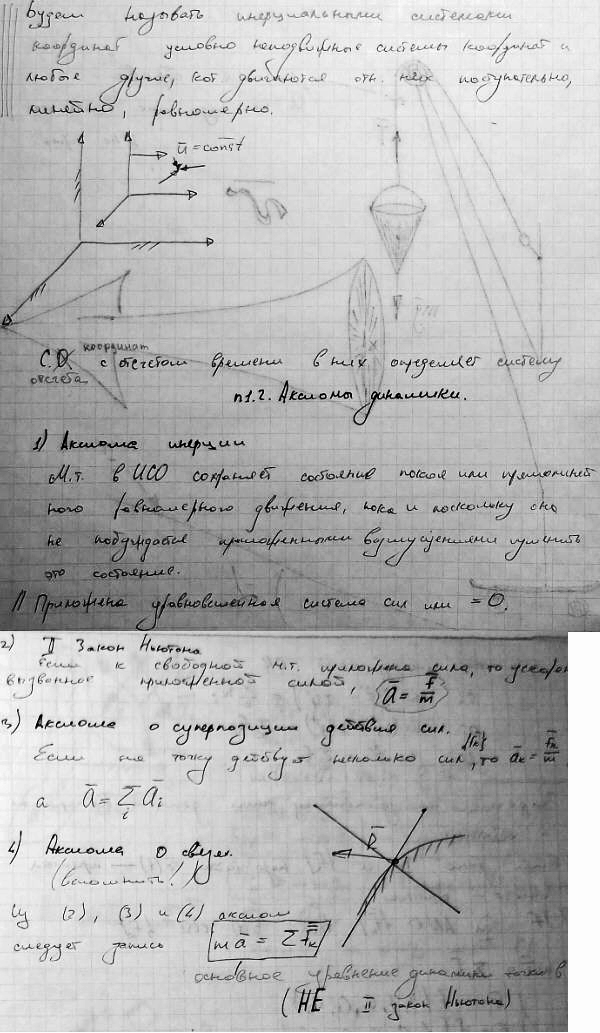 Будем называть инерциальными системами
координат условно неподвижные системы координат и
любые другие, кот. движутся отн. них поступательно,
линейно, равномерно.
ū = const
координат
С.О. с отсчетом времени в них определяет систему
отсчета
п1.2. Аксиомы динамики.
1) Аксиома инерции
М.т. в ИСО сохраняет состояние покоя или прямолиней
ного равномерного движения, пока и поскольку она
не побуждается приложенными возмущениями изменить
это состояние.
Приложена уравновешенная система сил или = 0.
2) II Закон Ньютона
Если к свободной м.т. приложена сила, то ускорен
вызванное приложенной силой, ā = f̄/m
3) Аксиома о суперпозиции действия сил.
Если на точку действует несколько сил {f̄k}, то āk = f̄k/m
а ā = Σi āi
4) Аксиома о связях.
(вспомнить!)
R̄
Из (2), (3) и (4) аксиом
следует запись mā = Σf̄k
основное уравнение динамики точки в
(НЕ II закон Ньютона)